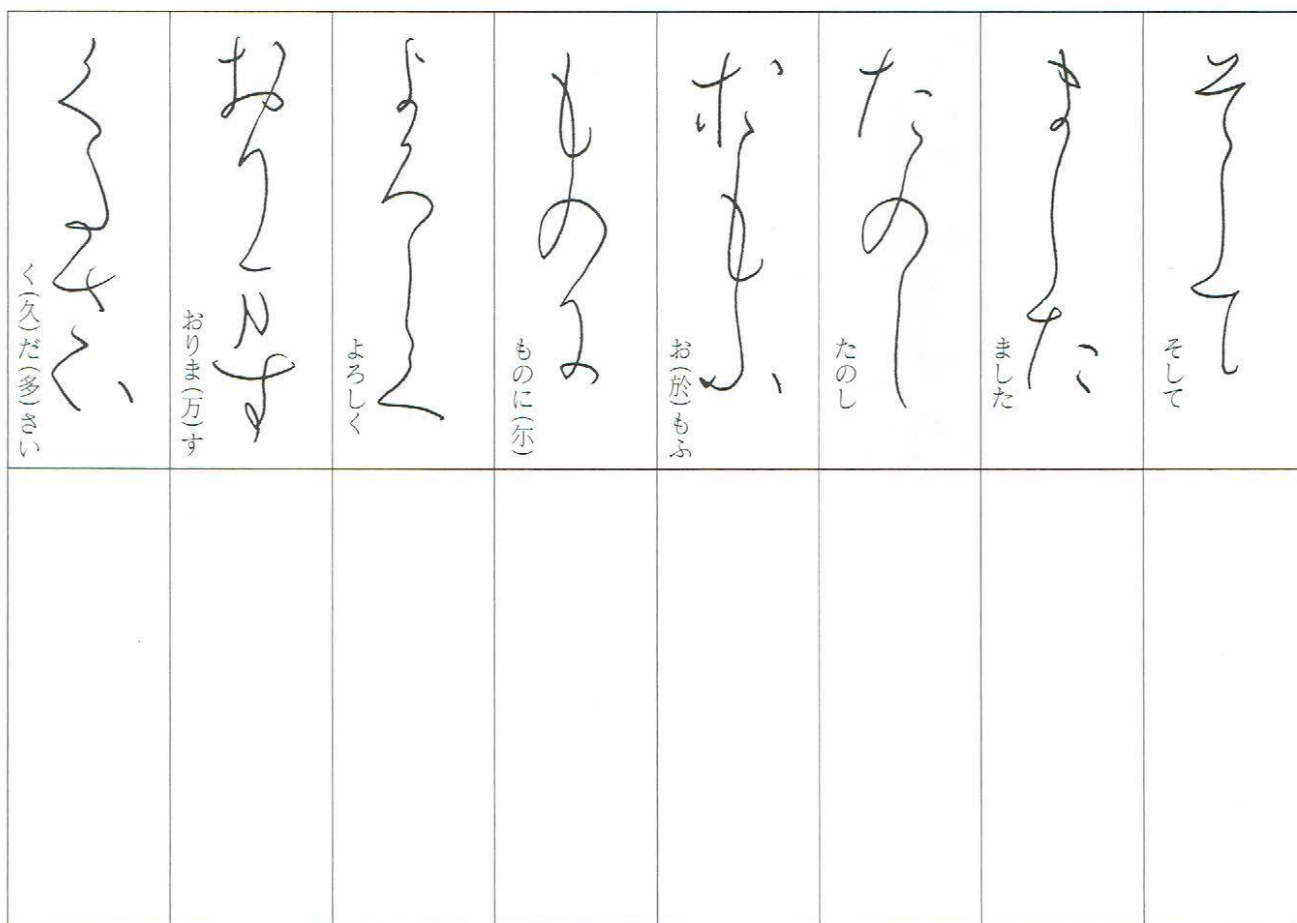 そして
そして
ました
ました
たのし
たのし
おもふ
お(於)もふ
ものに
ものに(尓)
よろしく
よろしく
おります
おりま(万)す
ください
く(久)だ(多)さい